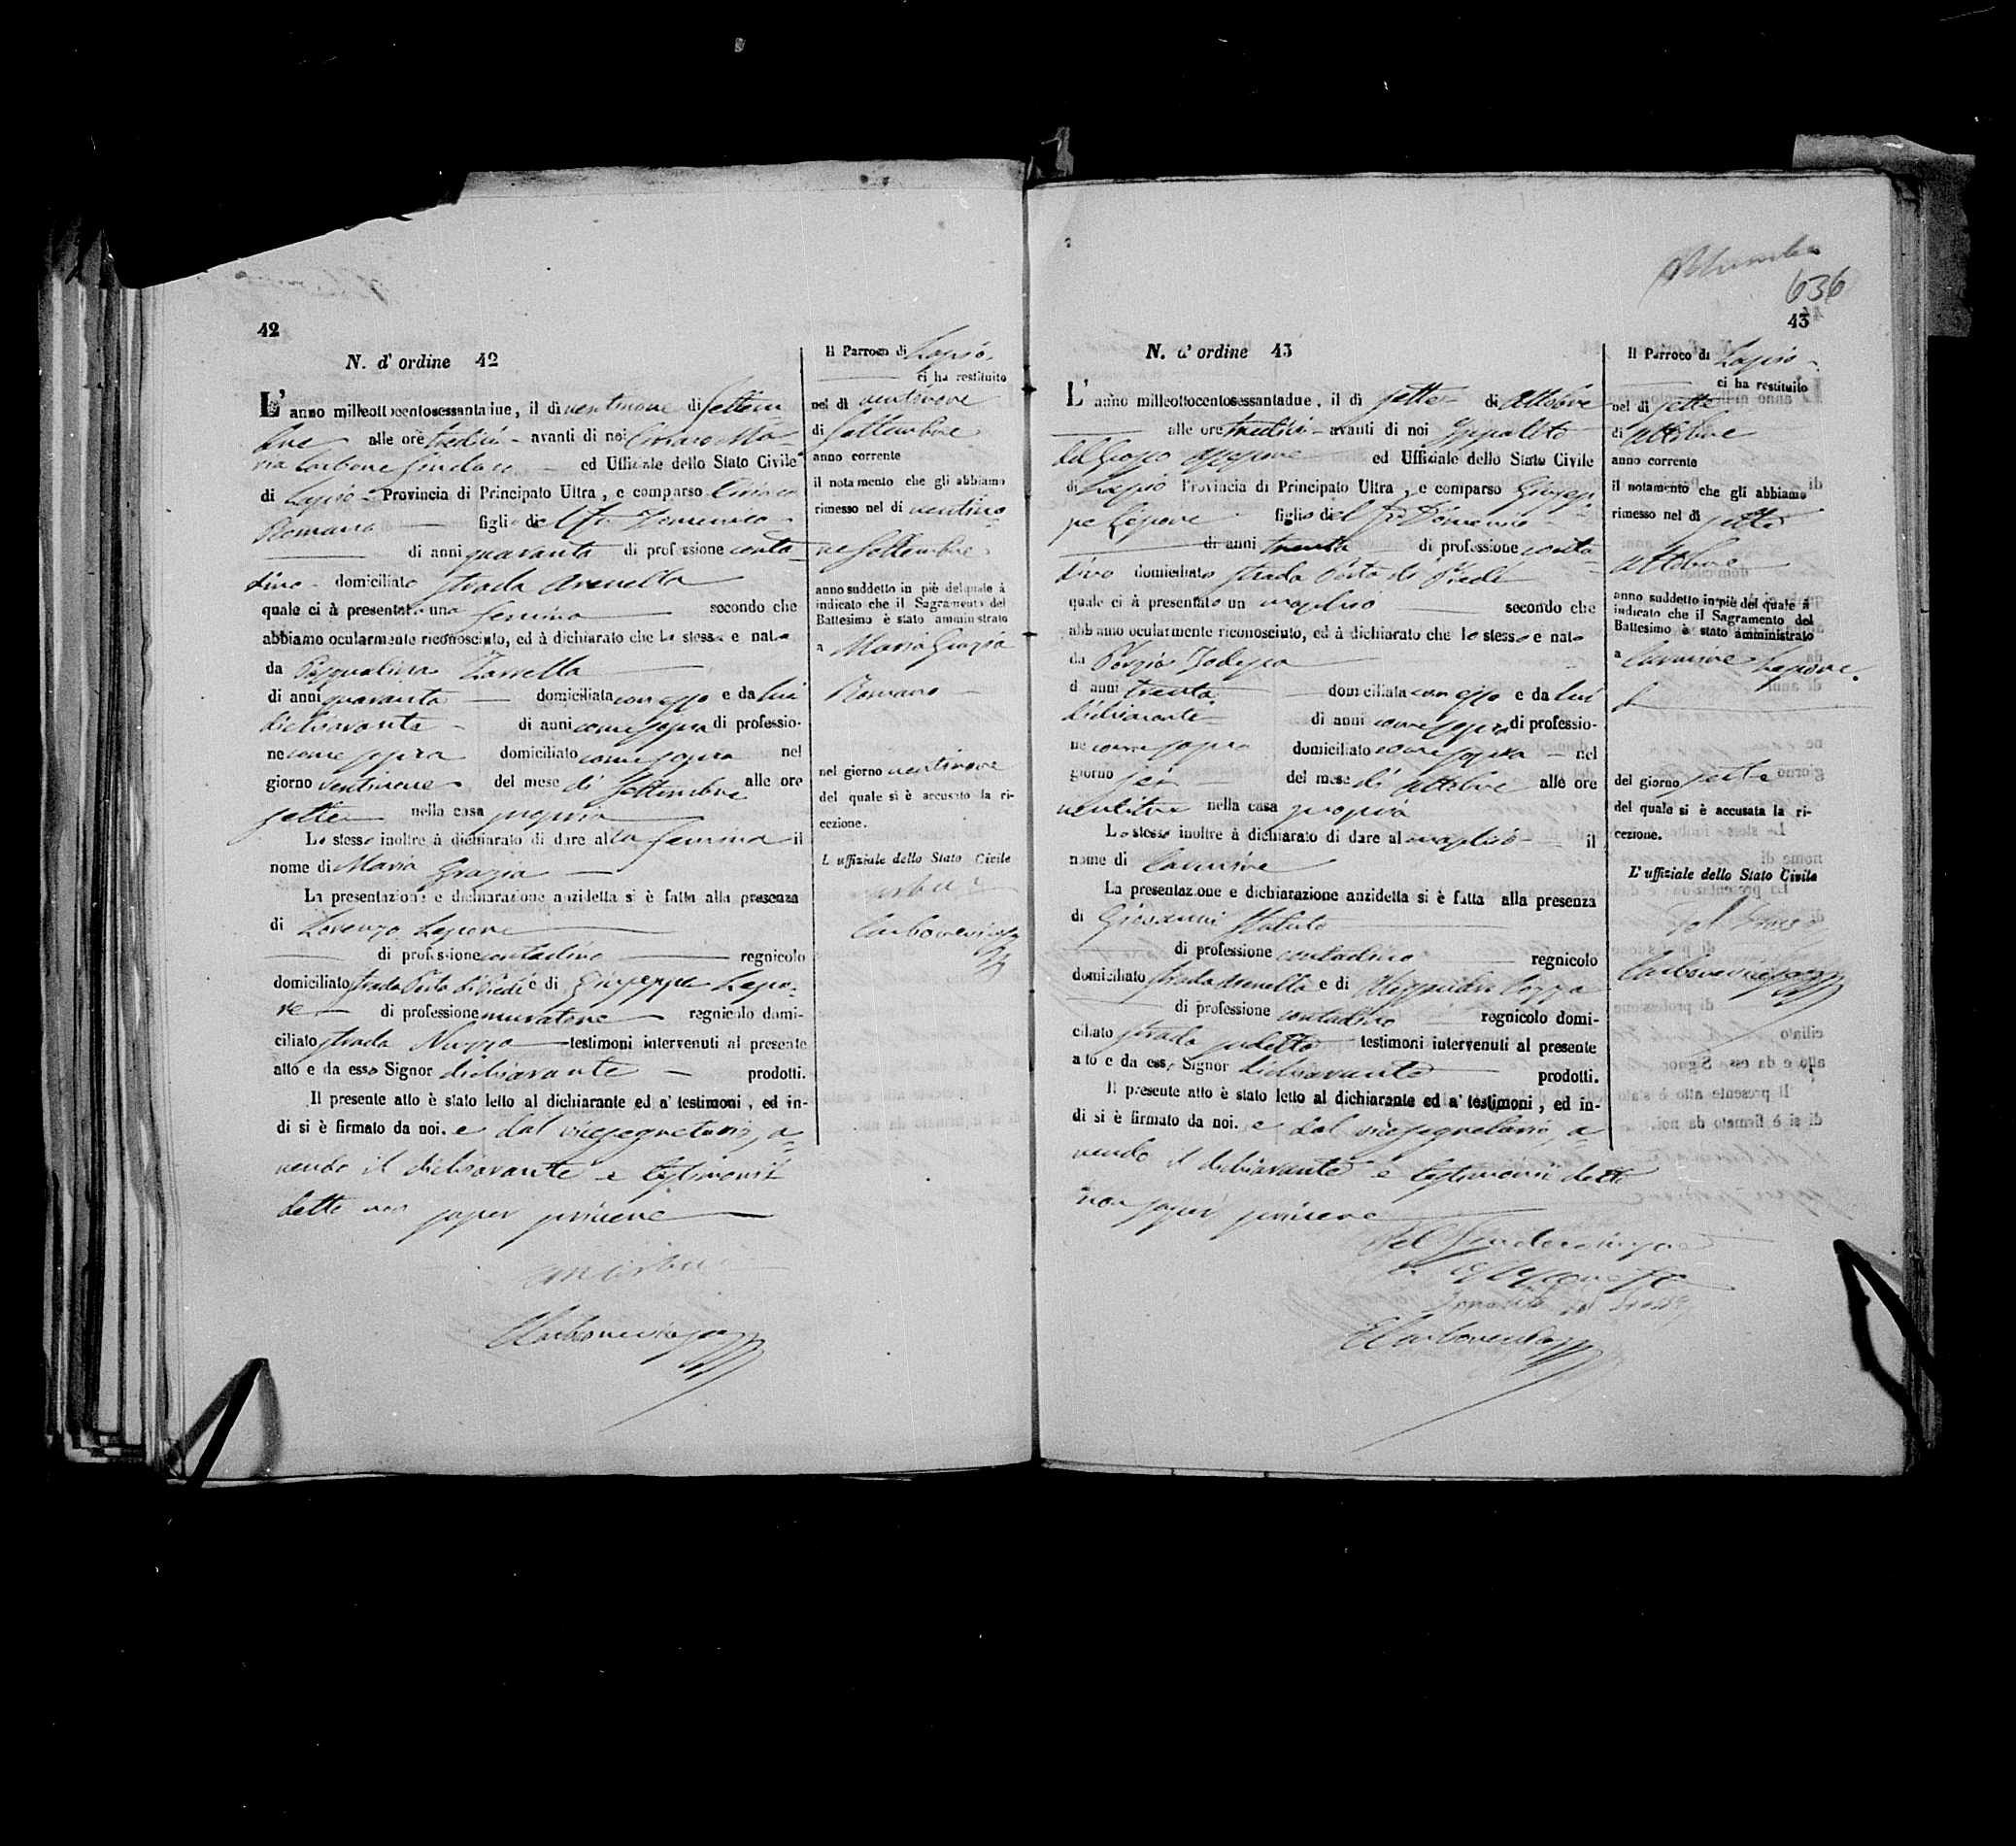 42
N. d' ordine 42
L' anno milleottocentosessantadue, il dì ventinove di Settem
bre alle ore tredici avanti di noi Ciriaco Ma-
ria Carbone Sindaco ed Uffiziale dello Stato Civile
di Lapio Provincia di Principato Ultra, e comparso Ciriaco
Romano figlio del fu Domenico
di anni quaranta di professione conta-
dino domiciliato strada Arenella
quale ci à presentato una femina secondo che
abbiamo ocularmente riconosciuto, ed à dichiarato che la stessa e nata
da Pasqualina Zarrella
di anni quaranta domiciliata con esso e da lui
dichiarante di anni come sopra di professio-
ne come sopra domiciliato come sopra nel
giorno ventinove del mese di Settembre alle ore
sette nella casa propria
Lo stesso inoltre à dichiarato di dare alla femina il
nome di Maria Grazia
La presentazione e dichiarazione anzidetta si è fatta alla presenza
di Lorenzo Lepore
di professione contadino regnicolo
domiciliato strada Porta di Piedi e di Giuseppe Lepo-
re di professione muratore regnicolo domi-
ciliato strada testimoni intervenuti al presente
atto e da esso Signor dichiarante prodotti.
Il presente atto è stato letto al dichiarante ed a' testimoni, ed in-
di si è firmato da noi. e dal vicesegretario, a-
vendo il dichiarante e testimonii
detto non saper scrivere
Il Parroco di Lapio
ci ha restituito
nel dì ventinove
di Settembre
anno corrente
il notamento che gli abbiamo
rimesso nel dì ventino-
ve Settembre
anno suddetto in piè del quale à
indicato che il Sagramento del
Battesimo è stato amministrato
a Maria Grazia
Romano
nel giorno ventinove
del quale si è accusato la ri-
cezione.
L' uffiziale dello Stato Civile
636
43
N. d' ordine 43
L' anno milleottocentosessantadue, il dì sette di Ottobre
alle ore tredici avanti di noi Ippolito
del Grosso Assessore ed Uffiziale dello Stato Civile
di Lapio Provincia di Principato Ultra, e comparso Giusep-
pe Lepore figlio del fu Domenico
di anni trenta di professione conta-
dino domiciliato strada Porta di Piedi
quale ci à presentato un maschio secondo che
abbiamo ocularmente riconosciuto, ed à dichiarato che lo stesso e nato
da Porzia
di anni trenta domiciliata con esso e da lui
dichiarante di anni come sopra di professio-
ne come sopra domiciliato come sopra nel
giorno sei del mese di Ottobre alle ore
ventitre nella casa propria
Lo stesso inoltre à dichiarato di dare al maschio il
nome di Carmine
La presentazione e dichiarazione anzidetta si è fatta alla presenza
di Giovanni
di professione contadino regnicolo
domiciliato strada Arenella e di
di professione contadino regnicolo domi-
ciliato strada sudetta testimoni intervenuti al presente
atto e da esso Signor dichiarante prodotti.
Il presente atto è stato letto al dichiarante ed a' testimoni, ed in-
di si è firmato da noi. e dal vicesegretario, a-
vendo il dichiarante e testimonii detto
non saper scrivere
Il Parroco di Lapio
ci ha restituito
nel dì sette
di Ottobre
anno corrente
il notamento che gli abbiamo
rimesso nel dì sette
Ottobre
anno suddetto in piè del quale à
indicato che il Sagramento del
Battesimo è stato amministrato
a Carmine Lepore
del giorno sette
del quale si è accusata la ri-
cezione.
L' uffiziale dello Stato Civile